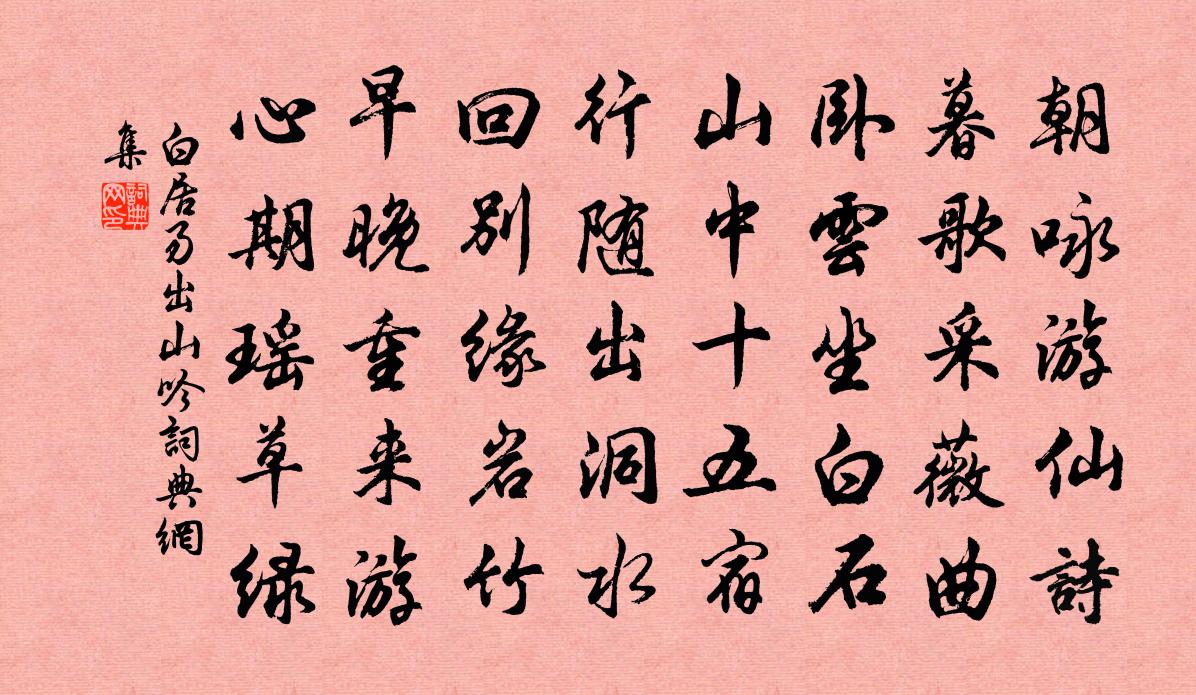 朝咏游仙詩
暮歌采薇曲
卧雲坐白石
山中十五宿
行随出洞水
回别缘岩竹
早晚重来游
心期瑶草绿
白居易出山吟詞典網
集
詞典网印